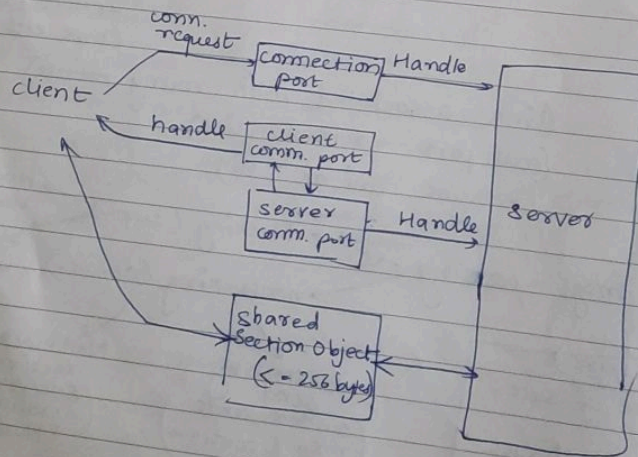 conn.
request
connection
port
Handle
client
handle
client
comm. port
server
comm. port
Handle
Server
Shared
Section Object
(<= 256 bytes)